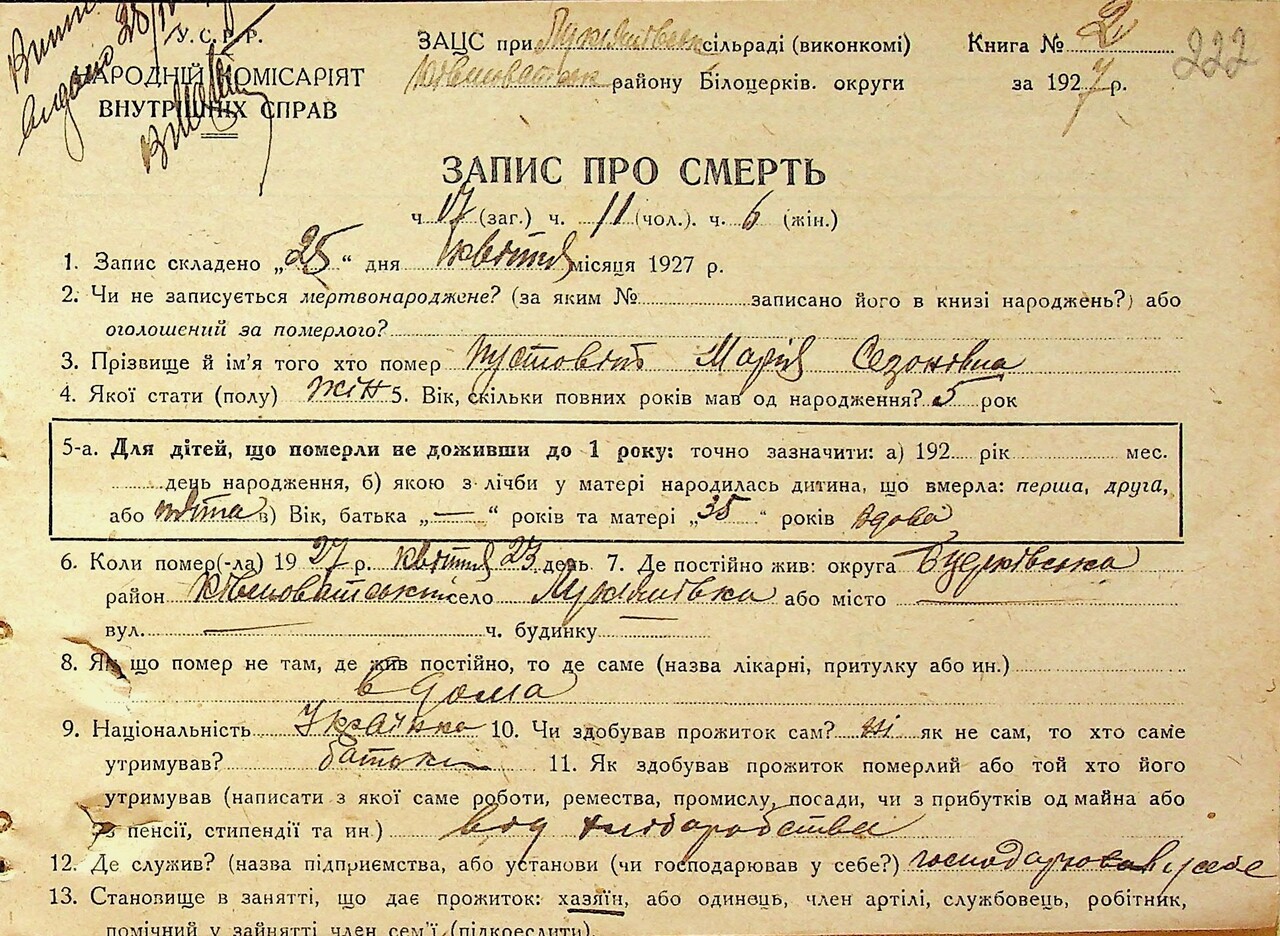 Видано 28/IV
У.С.Р.Р.
НАРОДНІЙ КОМІСАРІЯТ
ВНУТРІШНІХ СПРАВ
ЗАЦС при Лукіянівськ сільраді (виконкомі)
району Білоцерків. округи
Книга № 2
за 1927 р.
222
ЗАПИС ПРО СМЕРТЬ
ч 17 (заг.) ч. 11 (чол.). ч. 6 (жін.)
1. Запис складено „25“ дня квітня місяця 1927 р.
2. Чи не записується мертвонароджене? (за яким № записано його в книзі народжень?) або
оголошений за померлого?
3. Прізвище й ім'я того хто помер Пустовіт Марія Сезонівна
4. Якої стати (полу) жін 5. Вік, скільки повних років мав од народження? 5 рок
5-а. Для дітей, що померли не доживши до 1 року: точно зазначити: а) 192 рік мес.
день народження, б) якою з лічби у матері народилась дитина, що вмерла: перша, друга,
або п'ята в) Вік, батька „—“ років та матері „35“ років вдова
6. Коли помер(-ла) 1927 р. квітня 23 день 7. Де постійно жив: округа
район село Лукіянівка або місто —
вул. — ч. будинку
8. Як що помер не там, де жив постійно, то де саме (назва лікарні, притулку або ин.)
в дома
9. Національність Українка 10. Чи здобував прожиток сам? ні як не сам, то хто саме
утримував? батьки 11. Як здобував прожиток померлий або той хто його
утримував (написати з якої саме роботи, ремества, промислу, посади, чи з прибутків од майна або
з пенсії, стипендії та ин.) від хліборобства
12. Де служив? (назва підприємства, або установи (чи господарював у себе?) господарював у себе
13. Становище в занятті, що дає прожиток: хазяїн, або одинець, член артілі, службовець, робітник,
помічний у зайнятті член сем'ї (підкреслити).